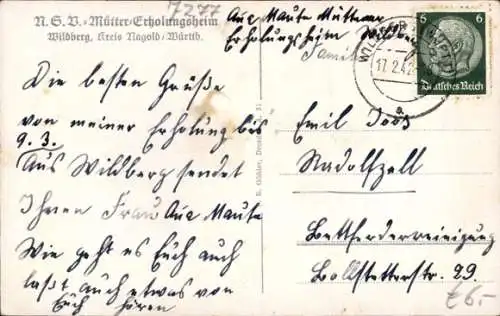 7277
N.S.V.-Mütter-Erholungsheim
Wildberg, Kreis Nagold-Württb.
Aug Maute Mütter
Erholungsheim Wildberg
Famil
17.2.42
a
6 6
Deutsches Reich
Die besten Grüße
von meiner Erholung bis
9.3.
Aus Wildberg sendet
Ihnen Frau Aug Maute
Wie geht es Euch auch
laßt auch etwas von
Euch hören
Emil Joos
Radolfzell
Bettfederreinigung
Bollstetterstr. 29.
£6-